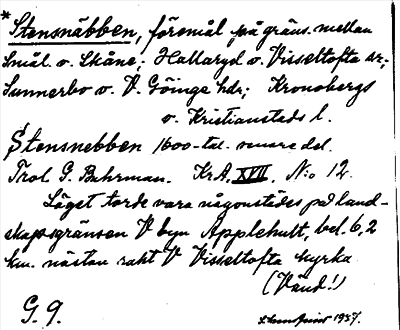 * Stensnäbben, föremål på gräns. mellan
Smål. o. Skåne; Hallaryd o. Visseltofta sr;
Sunnerbo o. V. Göinge hdr; Kronobergs
o. Kristianstads l.
Stensnebben 1600-tal. senare del.
Trol. G. Buhrman. Kr.A. XVII. N:o 12.
Läget torde vara någonstädes på land-
skapsgränsen V byn Applehult, bel. 6,2
km. nästan rakt V Visseltofta kyrka
(Vänd!)
G. 9. 1937.